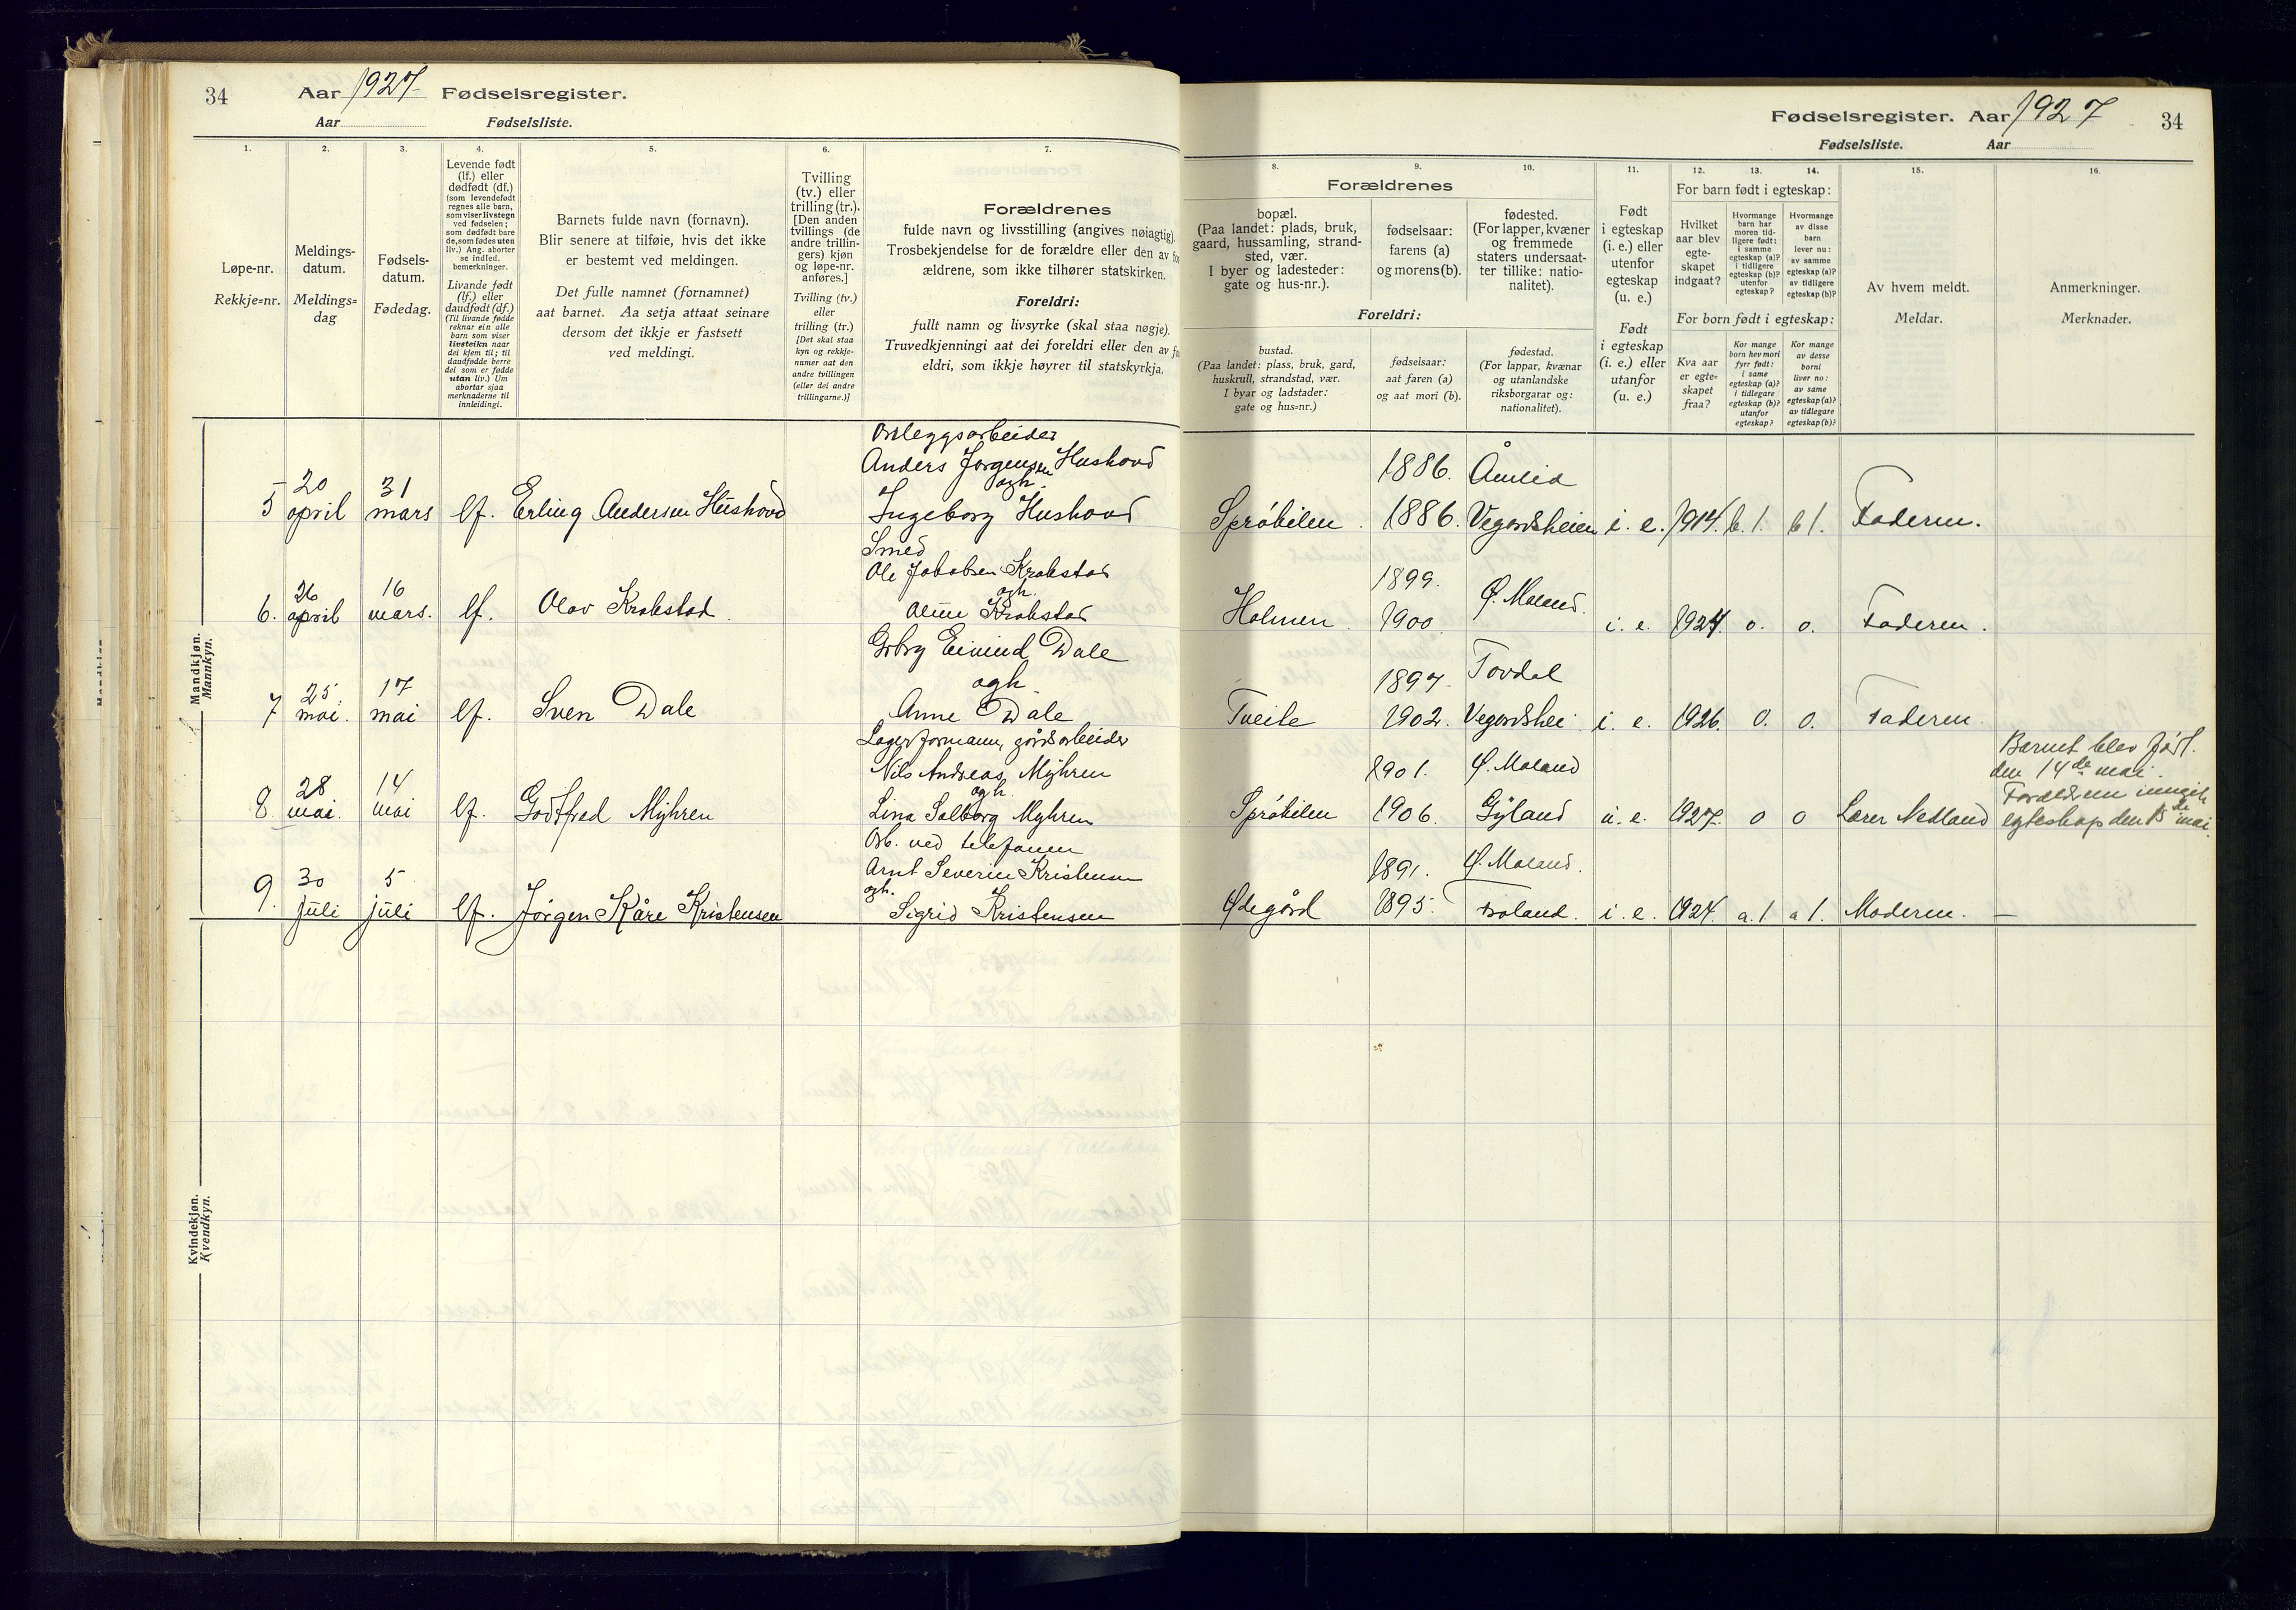 34 Aar 1927 Fødselsregister.
Aar Fødselsliste.
1. 2. 3. 4. 5. 6. 7.
Løpe-nr.
Rekkje=nr.
Meldings-
datum.
Meldings=
dag
Fødsels-
datum.
Fødedag.
Levende født
(lf.) eller
dødfødt (df.)
(som levendefødt
regnes alle barn,
som viser livstegn
ved fødselen;
som dødfødt bare
de, som fødes uten
liv.) Ang. aborter
se indled.
bemerkninger.
Livande født
(lf.) eller
daudfødt (df.)
(Til livande fødde
reknar ein alle
barn som viser
livsteikn naar
dei kjem til; til
daudfødde berre
dei som er fødde
utan liv.) Um
abortar sjaa
merknaderne til
innleidingi.
Barnets fulde navn (fornavn).
Blir senere at tilføie, hvis det ikke
er bestemt ved meldingen.
Det fulle namnet (fornamnet)
aat barnet. Aa setja attaat seinare
dersom det ikkje er fastsett
ved meldingi.
Tvilling
(tv.) eller
trilling (tr.).
[Den anden
tvillings (de
andre trillin-
gers) kjøn
og løpe-nr.
anføres.]
Tvilling (tv.)
eller
trilling (tr.)
[Det skal staa
kyn og rekkje-
numer aat den
andre tvillingen
(eller dei andre
trillingarne.)]
Forældrenes
fulde navn og livsstilling (angives nøiagtig).
Trosbekjendelse for de forældre eller den av
ældrene, som ikke tilhører statskirken.
Foreldri:
fullt namn og livsyrke (skal staa nøgje).
Truvedkjenningi aat dei foreldri eller den av
eldri, som ikkje høyrer til statskyrkja.
Mandkjøn.
Mannkyn.
Anders Jørgensen Hushovd
ogh.
5 20 april 31 mars lf. Erling Andersen Hushovd Ingeborg Hushovd
Smed
Ole Jakobsen Krokstad
ogh.
6. 26 april 16 mars. lf. Olav Krokstad Krokstad
Eivind Dale
ogh
7 25. mai. 17 mai lf. Sven Dale Anne Dale
gårdsarbeider
Nils Andreas Myhren
ogh.
8. 28 mai. 14 mai lf. Godtfred Myhren Lina Solborg Myhren
Arb. ved telefonen
Arnt Severin Kristensen
ogh.
9. 30 juli 5 juli lf. Jørgen Kåre Kristensen Sigrid Kristensen
Kvindekjøn.
Kvendkyn.
Fødselsregister. Aar 1927 34
Fødselsliste. Aar
8. 9. 10. 11. 12. 13. 14. 15. 16.
Forældrenes
bopæl.
(Paa landet: plads, bruk,
gaard, hussamling, strand-
sted, vær.
I byer og ladesteder:
gate og hus-nr.).
fødselsaar:
farens (a)
og morens (b).
fødested.
(For lapper, kvæner
og fremmede
staters undersaat-
ter tillike: natio-
nalitet).
Foreldri:
bustad.
(Paa landet: plass, bruk, gard,
huskrull, strandstad, vær.
I byar og ladstader:
gate og hus=nr.)
fødselsaar:
aat faren (a)
og aat mori (b).
fødestad.
(For lappar, kvænar
og utanlandske
riksborgarar og:
nationalitet).
Født
i egteskap
(i. e.) eller
utenfor
egteskap
(u. e.)
Født
i egteskap
(i. e.) eller
utanfor
(u. e.)
For barn født i egteskap:
Hvilket
aar blev
egte-
skapet
indgaat?
Hvormange
barn har
moren tid-
ligere født:
i samme
egteskap (a)?
i tidligere
egteskap (b)?
utenfor
egteskap?
Hvormange
av disse
barn
lever nu:
av samme
egteskap (a)?
av tidligere
egteskap (b)?
For born født i egteskap:
Kva aar
er egte-
skapet
fraa?
Kor mange
born hev mori
fyrr født:
i same
egteskap (a)?
i tidlegare
egteskap (b)?
utanfor
egteskap?
Kor mange
av desse
borni
liver no:
av same
egteskap (a)?
av tidlegare
egteskap (b)?
Av hvem meldt.
Meldar.
Anmerkninger.
Merknader.
1886. Åmlid
Sprökilen. 1886. Vegardsheien i. e. 1914. b. 1. b 1. Faderen.
1899. Ø. Moland.
Holmen. 1900 i. e. 1924. 0. 0. Faderen.
1897. Tovdal
Tveite 1902. Vegardshei i. e. 1926. 0. 0. Faderen
1901. Ø. Moland
Sprökilen 1906. Gyland u. e. 1927. 0 0 Lærer Nedland
Barnet blev født
den 14de mai.
Forældrene inngik
egteskap den 15de mai.
1891. Ø. Moland.
Ødegård 1895. Froland. i. e. 1924. a. 1 a 1. Moderen. —